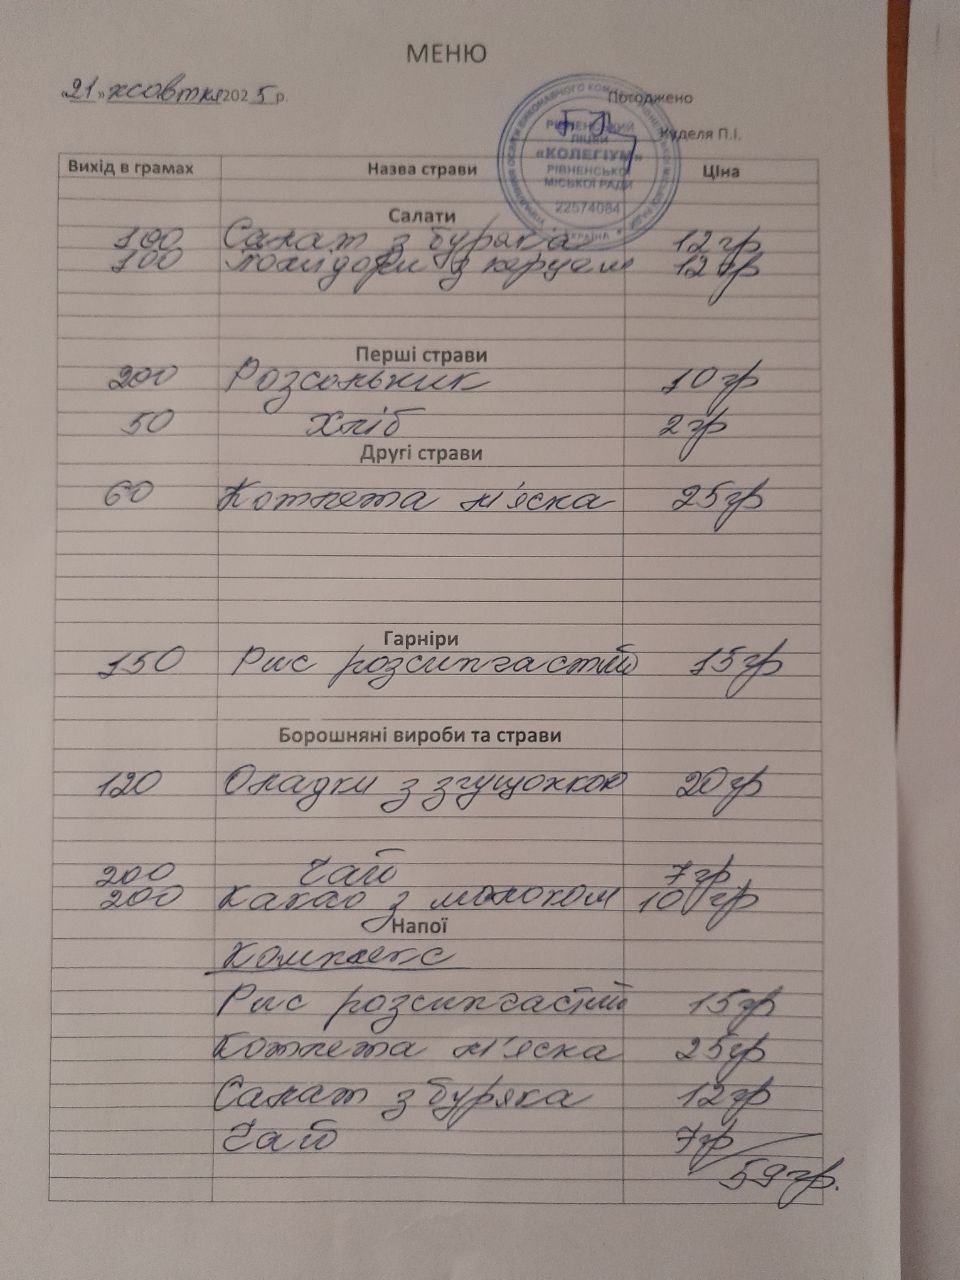 МЕНЮ
«21» жовтня 2025 р.
Погоджено
Куделя П.І.
УПРАВЛІННЯ ОСВІТИ ВИКОНАВЧОГО КОМІТЕТУ РІВНЕНСЬКОЇ МІСЬКОЇ РАДИ
РІВНЕНСЬКИЙ
ЛІЦЕЙ
«КОЛЕГІУМ»
РІВНЕНСЬКОЇ
МІСЬКОЇ РАДИ
22574084
УКРАЇНА
Вихід в грамах Назва страви Ціна
Салати
100 Салат з буряка 12 гр
100 Помідори з перцем 12 гр
Перші страви
200 Розсольник 10 гр
50 Хліб 2 гр
Другі страви
60 Котлета м'ясна 25 гр
Гарніри
150 Рис розсипчастий 15 гр
Борошняні вироби та страви
120 Оладки з згущонкою 20 гр
200 Чай 7 гр
200 Какао з молоком 10 гр
Напої
Комплекс
Рис розсипчастий 15 гр
Котлета м'ясна 25 гр
Салат з буряка 12 гр
Чай 7 гр
59 гр.